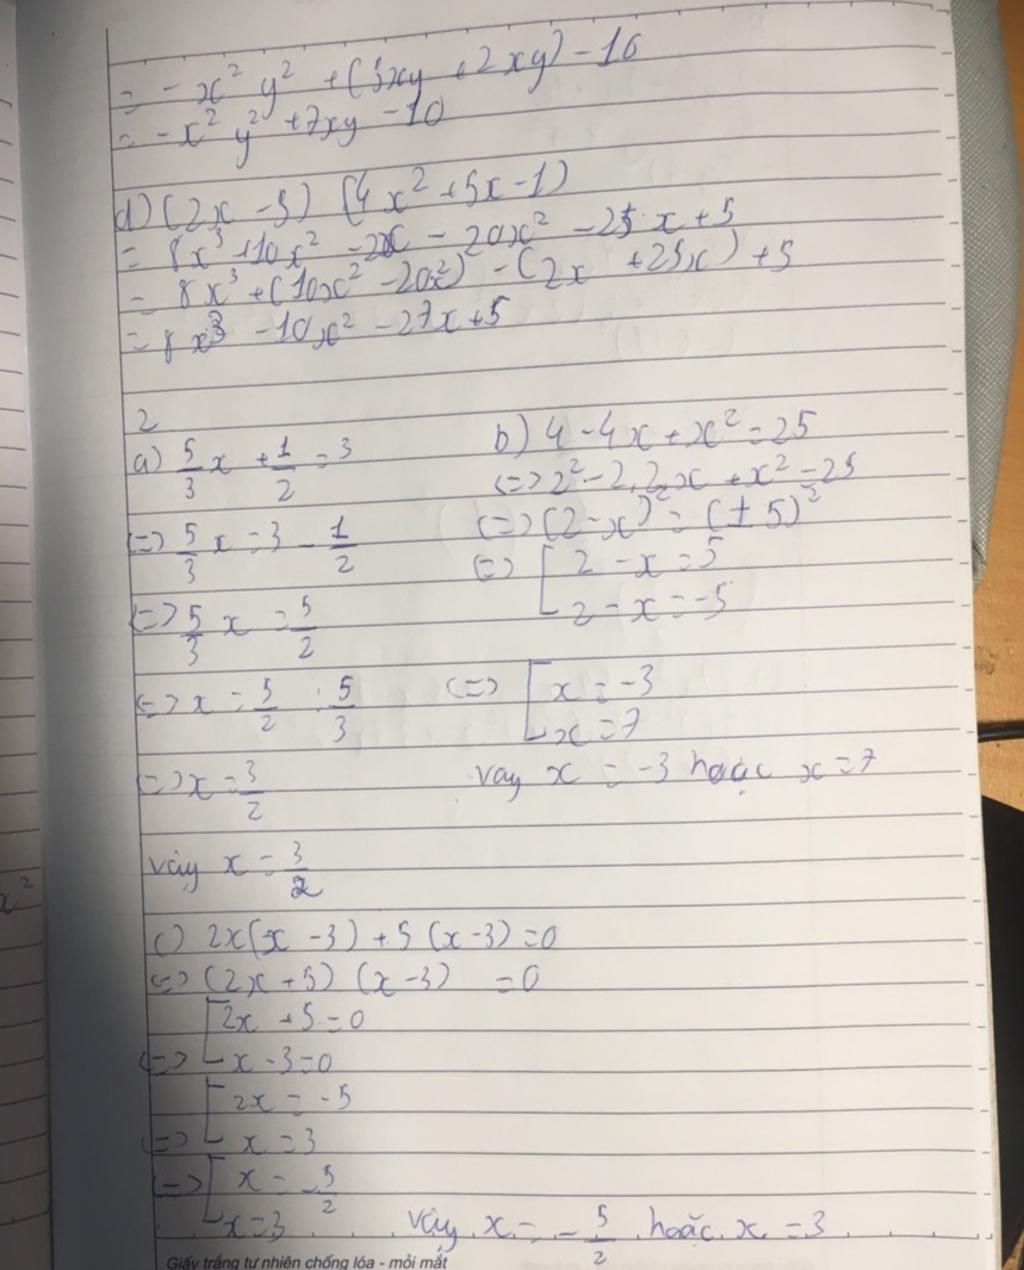 = -x² y² + (5xy + 2xy) - 10
= -x² y² + 7xy - 10
d) (2x - 5) (4x² + 5x - 1)
= 8x³ + 10x² - 2x - 20x² - 25x + 5
= 8x³ + (10x² - 20x²) - (2x + 25x) + 5
= 8x³ - 10x² - 27x + 5
2
a) 5/3 x + 1/2 = 3
<=> 5/3 x = 3 - 1/2
<=> 5/3 x = 5/2
<=> x = 5/2 : 5/3
<=> x = 3/2
vậy x = 3/2
b) 4 - 4x + x² = 25
<=> 2² - 2.2.x + x² = 25
<=> (2 - x)² = (± 5)²
<=> [ 2 - x = 5
2 - x = -5
<=> [ x = -3
x = 7
vay x = -3 hoặc x = 7
c) 2x(x - 3) + 5 (x - 3) = 0
<=> (2x + 5) (x - 3) = 0
[ 2x + 5 = 0
<=> x - 3 = 0
[ 2x = -5
<=> x = 3
<=> [ x = -5/2
x = 3
vậy x = - 5/2 hoặc x = 3
Giấy trắng tự nhiên chống lóa - mỏi mắt
x²